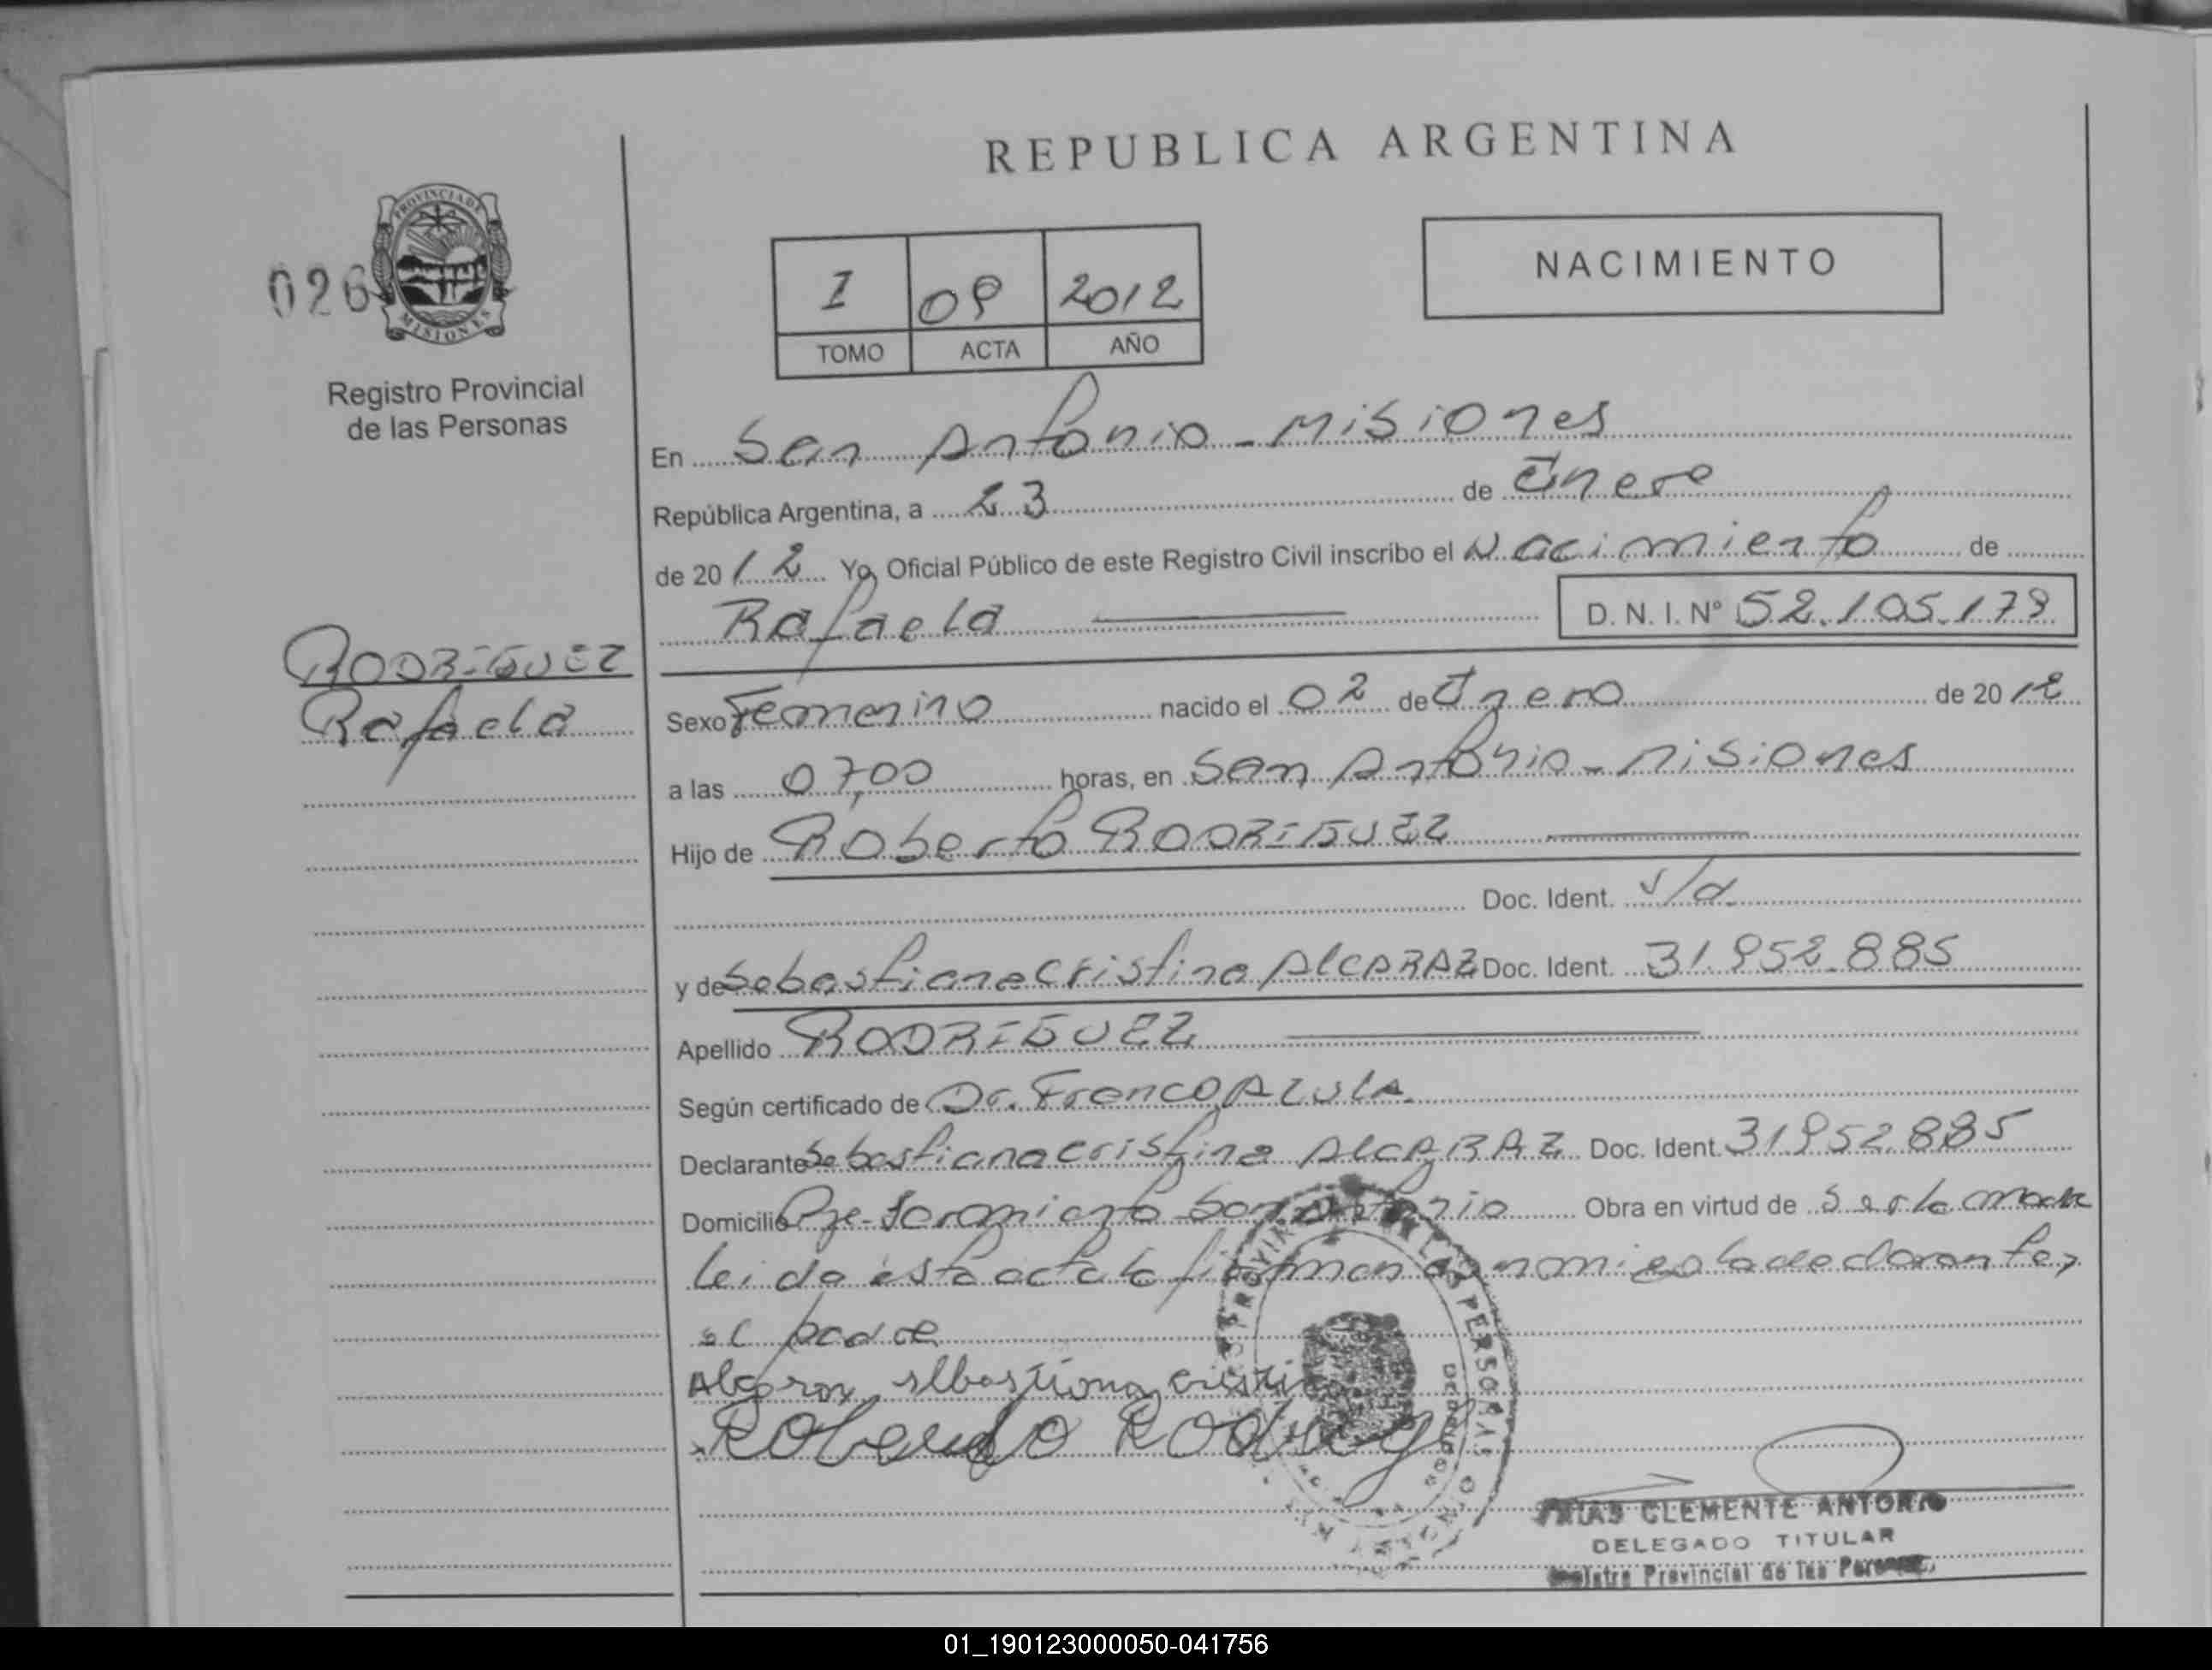 REPUBLICA ARGENTINA
PROVINCIA DE
MISIONES
026
Registro Provincial
de las Personas
I 09 2012
TOMO ACTA AÑO
NACIMIENTO
En San Antonio - Misiones
República Argentina, a 23 de Enero
de 2012 Yo, Oficial Público de este Registro Civil inscribo el Nacimiento de
Rafaela D. N. I. N° 52.105.179
RODRIGUEZ
Rafaela
Sexo Femenino nacido el 02 de Enero de 2012
a las 07,00 horas, en San Antonio - Misiones
Hijo de Roberto RODRIGUEZ
Doc. Ident. s/d
y de Sebastiana Cristina ALCARAZ Doc. Ident. 31.952.885
Apellido RODRIGUEZ
Según certificado de Dr. Franco AZULA
Declarante Sebastiana Cristina ALCARAZ Doc. Ident. 31952.885
Domicilio San Antonio Obra en virtud de Ser la madre
Leida esta acta la firman la declarante,
el padre
Alcaraz sebastiana cristina
Roberto Rodrigez
CLEMENTE ANTONIO
DELEGADO TITULAR
Registro Provincial de las Personas
01_190123000050-041756